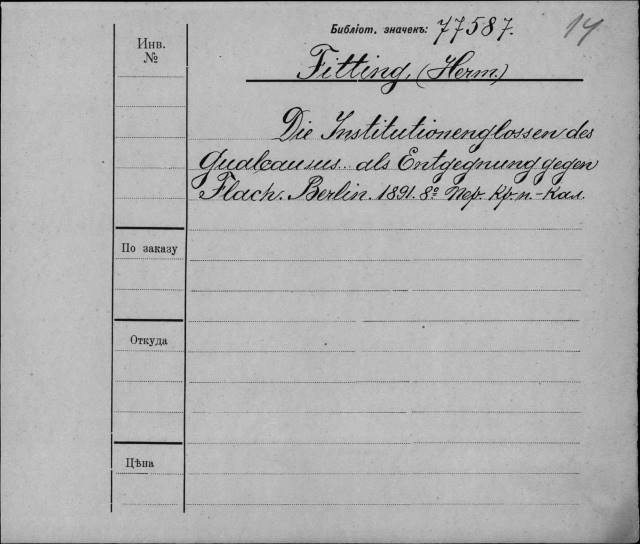 Библіот. значекъ: 77587. 14
Инв. №
Fitting, (Herm.)
Die Institutionenglossen des
Gualcausus.. als Entgegnung gegen
Flach. Berlin. 1891. 8º Пер. Кр.-п.-Кал.
По заказу
Откуда
Цѣна